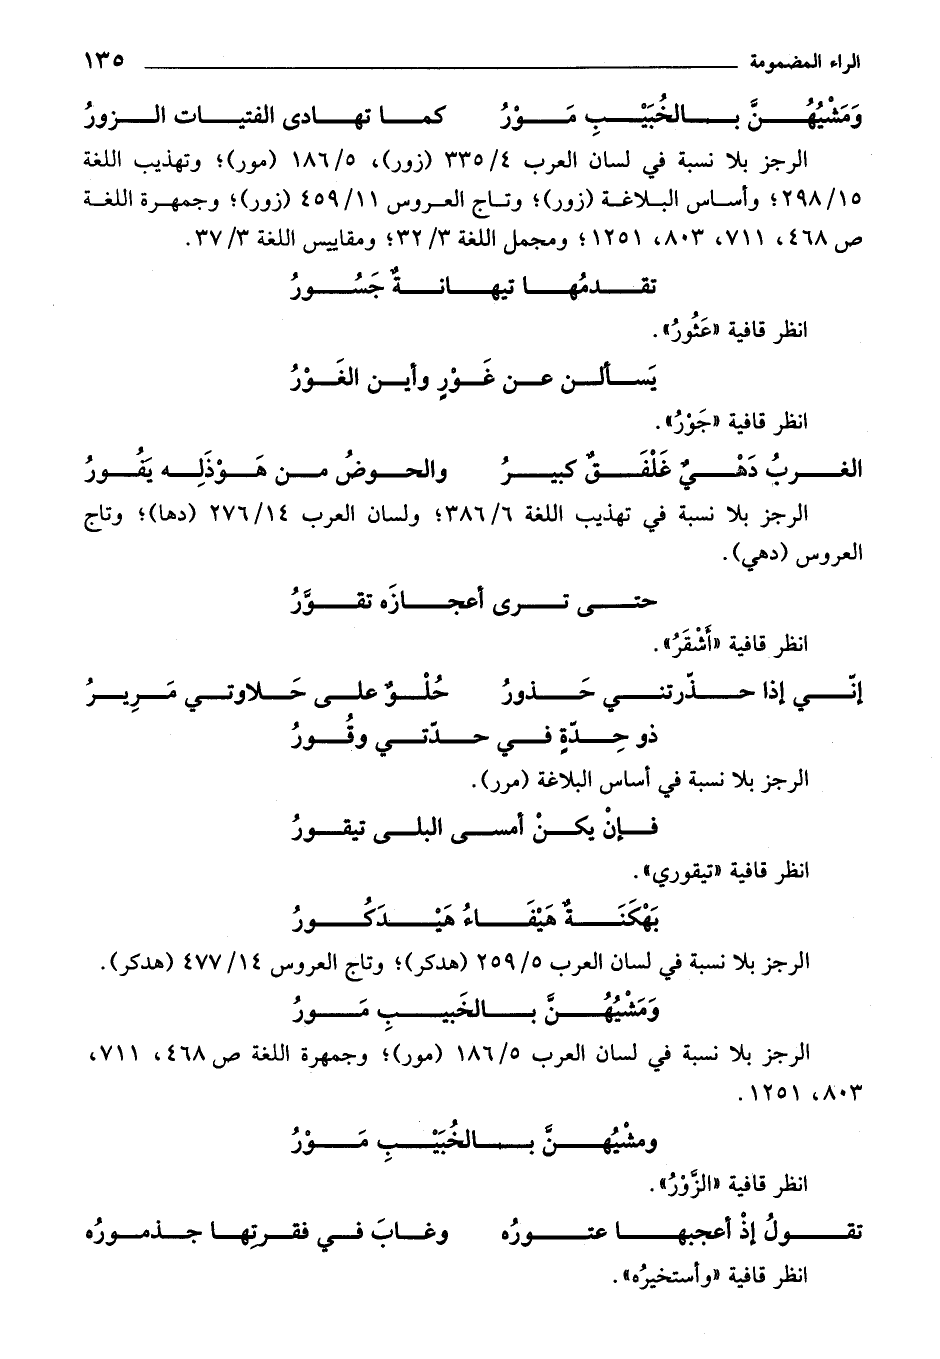 الراء المضمومة ١٣٥
وَمَشْيُهُنَّ بالخُبَيْبِ مَوْرُ كما تهادى الفتيات الزورُ
الرجز بلا نسبة في لسان العرب ٤/ ٣٣٥ (زور)، ٥/ ١٨٦ (مور)؛ وتهذيب اللغة
١٥/ ٢٩٨؛ وأساس البلاغة (زور)؛ وتاج العروس ١١/ ٤٥٩ (زور)؛ وجمهرة اللغة
ص ٤٦٨، ٧١١، ٨٠٣، ١٢٥١؛ ومجمل اللغة ٣/ ٣٢؛ ومقاييس اللغة ٣/ ٣٧.
تقدمُها تيهانةٌ جَسُورُ
انظر قافية «عَثُورُ».
يَسألن عن غَوْرٍ وأين الغَوْرُ
انظر قافية «جَوْرُ».
الغربُ دَهْيٌ غَلْفَقٌ كبيرُ والحوضُ من هَوْذَلِه يَفُورُ
الرجز بلا نسبة في تهذيب اللغة ٦/ ٣٨٦؛ ولسان العرب ١٤/ ٢٧٦ (دها)؛ وتاج
العروس (دهي).
حتى ترى أعجازَه تقوَّرُ
انظر قافية «أَشْقَرُ».
إنّي إذا حذّرتني حَذورُ حُلْوٌ على حَلاوتي مَرِيرُ
ذو حِدّةٍ في حدّتي وقُورُ
الرجز بلا نسبة في أساس البلاغة (مرر).
فإنْ يكنْ أمسى البلى تيقورُ
انظر قافية «تيقوري».
بَهْكَنَةٌ هَيْفَاءُ هَيْدَكُورُ
الرجز بلا نسبة في لسان العرب ٥/ ٢٥٩ (هدكر)؛ وتاج العروس ١٤/ ٤٧٧ (هدكر).
وَمَشْيُهُنَّ بالخَبيبِ مَورُ
الرجز بلا نسبة في لسان العرب ٥/ ١٨٦ (مور)؛ وجمهرة اللغة ص ٤٦٨، ٧١١،
٨٠٣، ١٢٥١.
ومشْيُهنَّ بالخُبَيْبِ مَوْرُ
انظر قافية «الزَّوْرُ».
تقولُ إذْ أعجبها عتورُه وغابَ في فقرتِها جذمورُه
انظر قافية «وأستخيرُه».